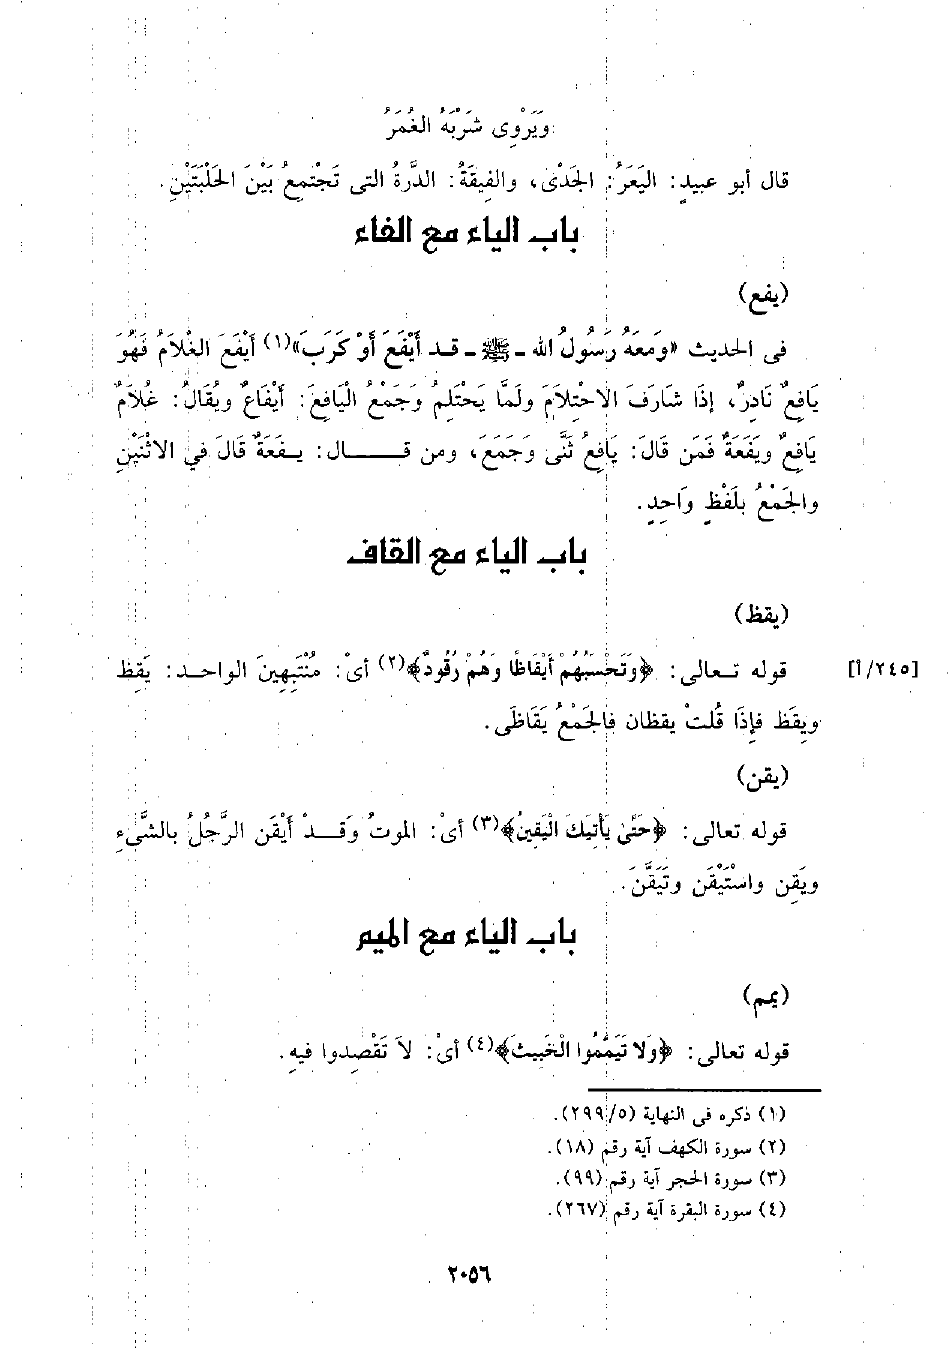 وَيَرْوِى شَرْبَهُ الغُمَرُ
قال أبو عبيدٍ: اليَعَرُ: الجَدْىُ، والفِيقَةُ: الدَّرةُ التى تَجْتمِعُ بَيْنَ الحَلْبَتَيْنِ.
باب الياء مع الفاء
(يفع)
فى الحديث «وَمَعَهُ رَسُولُ الله ـ ﷺ ـ قد أَيْفَعَ أَوْ كَرَبَ»(١) أَيْفَعَ الغْلاَمُ فَهُوَ
يَافِعٌ نَادِرٌ، إِذَا شَارَفَ الاِحْتِلاَمَ وَلَمَّا يَحْتَلِمُ وَجَمْعُ الْيَافِعَ: أَيْفَاعٌ ويُقَالُ: غُلاَمٌ
يَافِعٌ ويَفَعَةٌ فَمَن قَالَ: يَافِعُ ثَنَّى وَجَمَعَ، ومن قـــال: يـفَعَةٌ قَالَ فِي الاثْنَيْنِ
والجَمْعُ بلَفْظٍ وَاحِدٍ.
باب الياء مع القاف
(يقظ)
قوله تـعالى: ﴿وَتَحْسَبُهُمْ أَيْقَاظًا وَهُمْ رُقُودٌ﴾(٢) أىْ: مُنْتَبِهِينَ الواحـد: يَقِظ
[٢٤٥/أ]
ويقَظ فإِذَا قُلتْ يقظان فالجَمْعُ يَقَاظَى.
(يقن)
قوله تعالى: ﴿حَتَّىٰ يَأْتِيَكَ الْيَقِينُ﴾(٣) أىْ: الموتُ وَقـدْ أَيْقَن الرَّجُلُ بالشَّىْءِ
ويَقِن واسْتَيْقَن وتَيَقَّنَ.
باب الياء مع الميم
(يمم)
قوله تعالى: ﴿وَلا تَيَمَّمُوا الْخَبِيثَ﴾(٤) أىْ: لاَ تَقْصِدوا فيهِ.
(١) ذكره فى النهاية (٢٩٩/٥).
(٢) سورة الكهف آية رقم (١٨).
(٣) سورة الحجر آية رقم (٩٩).
(٤) سورة البقرة آية رقم (٢٦٧).
٢٠٥٦